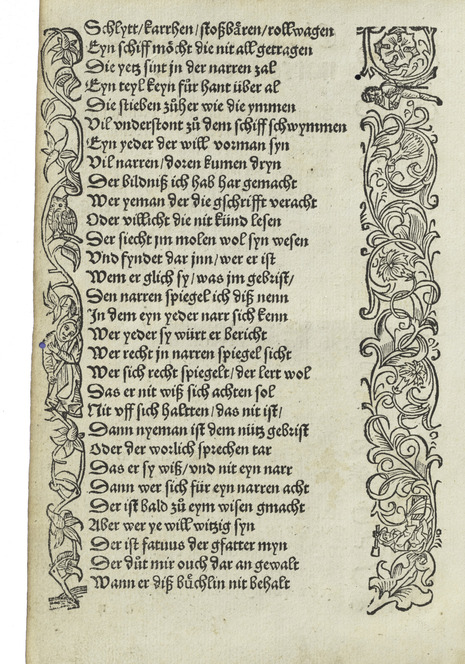 Schlytt/karrhen/stoßbären/rollwagen
Eyn schiff möcht die nit all getragen
Die yetz sint jn der narren zal
Eyn teyl keyn für hant über al
Die stieben zůher wie die ymmen
Vil vnderstont zů dem schiff schwymmen
Eyn yeder der will vorman syn
Vil narren/doren kumen dryn
Der bildniß ich hab har gemacht
Wer yeman der die gschrifft veracht
Oder villicht die nit künd lesen
Der siecht jm molen wol syn wesen
Vnd fyndet dar jnn/wer er ist
Wem er glich sy/was jm gebrist/
Den narren spiegel ich diß nenn
In dem eyn yeder narr sich kenn
Wer yeder sy würt er bericht
Wer recht jn narren spiegel sicht
Wer sich recht spiegelt/der lert wol
Das er nit wiß sich achten sol
Nit vff sich haltten/das nit ist/
Dann nyeman ist dem nütz gebrist
Oder der worlich sprechen tar
Das er sy wiß/vnd nit eyn narr
Dann wer sich für eyn narren acht
Der ist bald zů eym wisen gmacht
Aber wer ye will witzig syn
Der ist fatuus der gfatter myn
Der důt mir ouch dar an gewalt
Wann er diß büchlin nit behalt